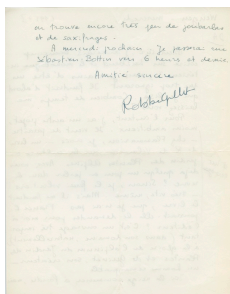 on trouve encore très peu de joubarbes
et de saxifrages.
A mercredi prochain. Je passerai rue
Sébastien Bottin vers 6 heures et demie.
Amitié sincère